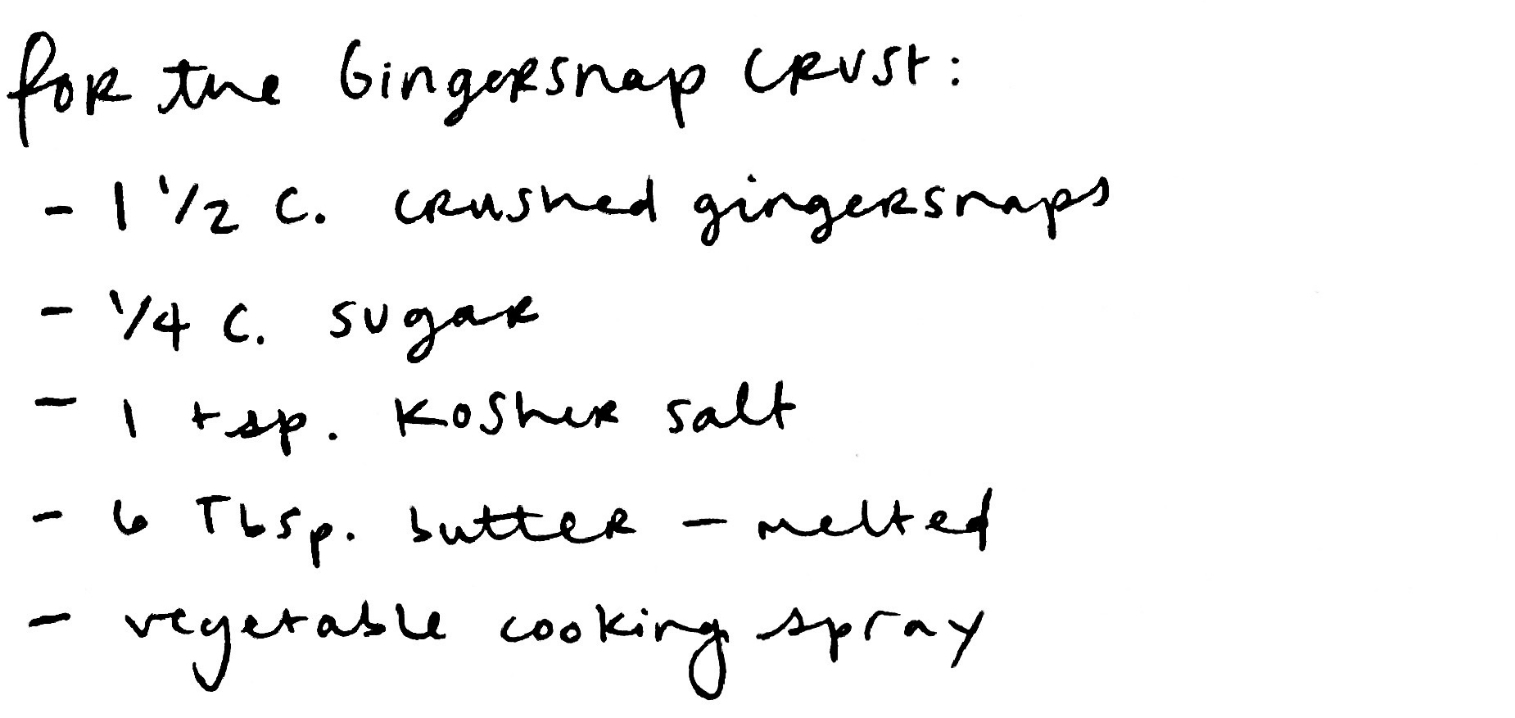 for the Gingersnap Crust:
- 1 1/2 c. crushed gingersnaps
- 1/4 c. sugar
- 1 tsp. Kosher salt
- 6 Tbsp. butter - melted
- vegetable cooking spray